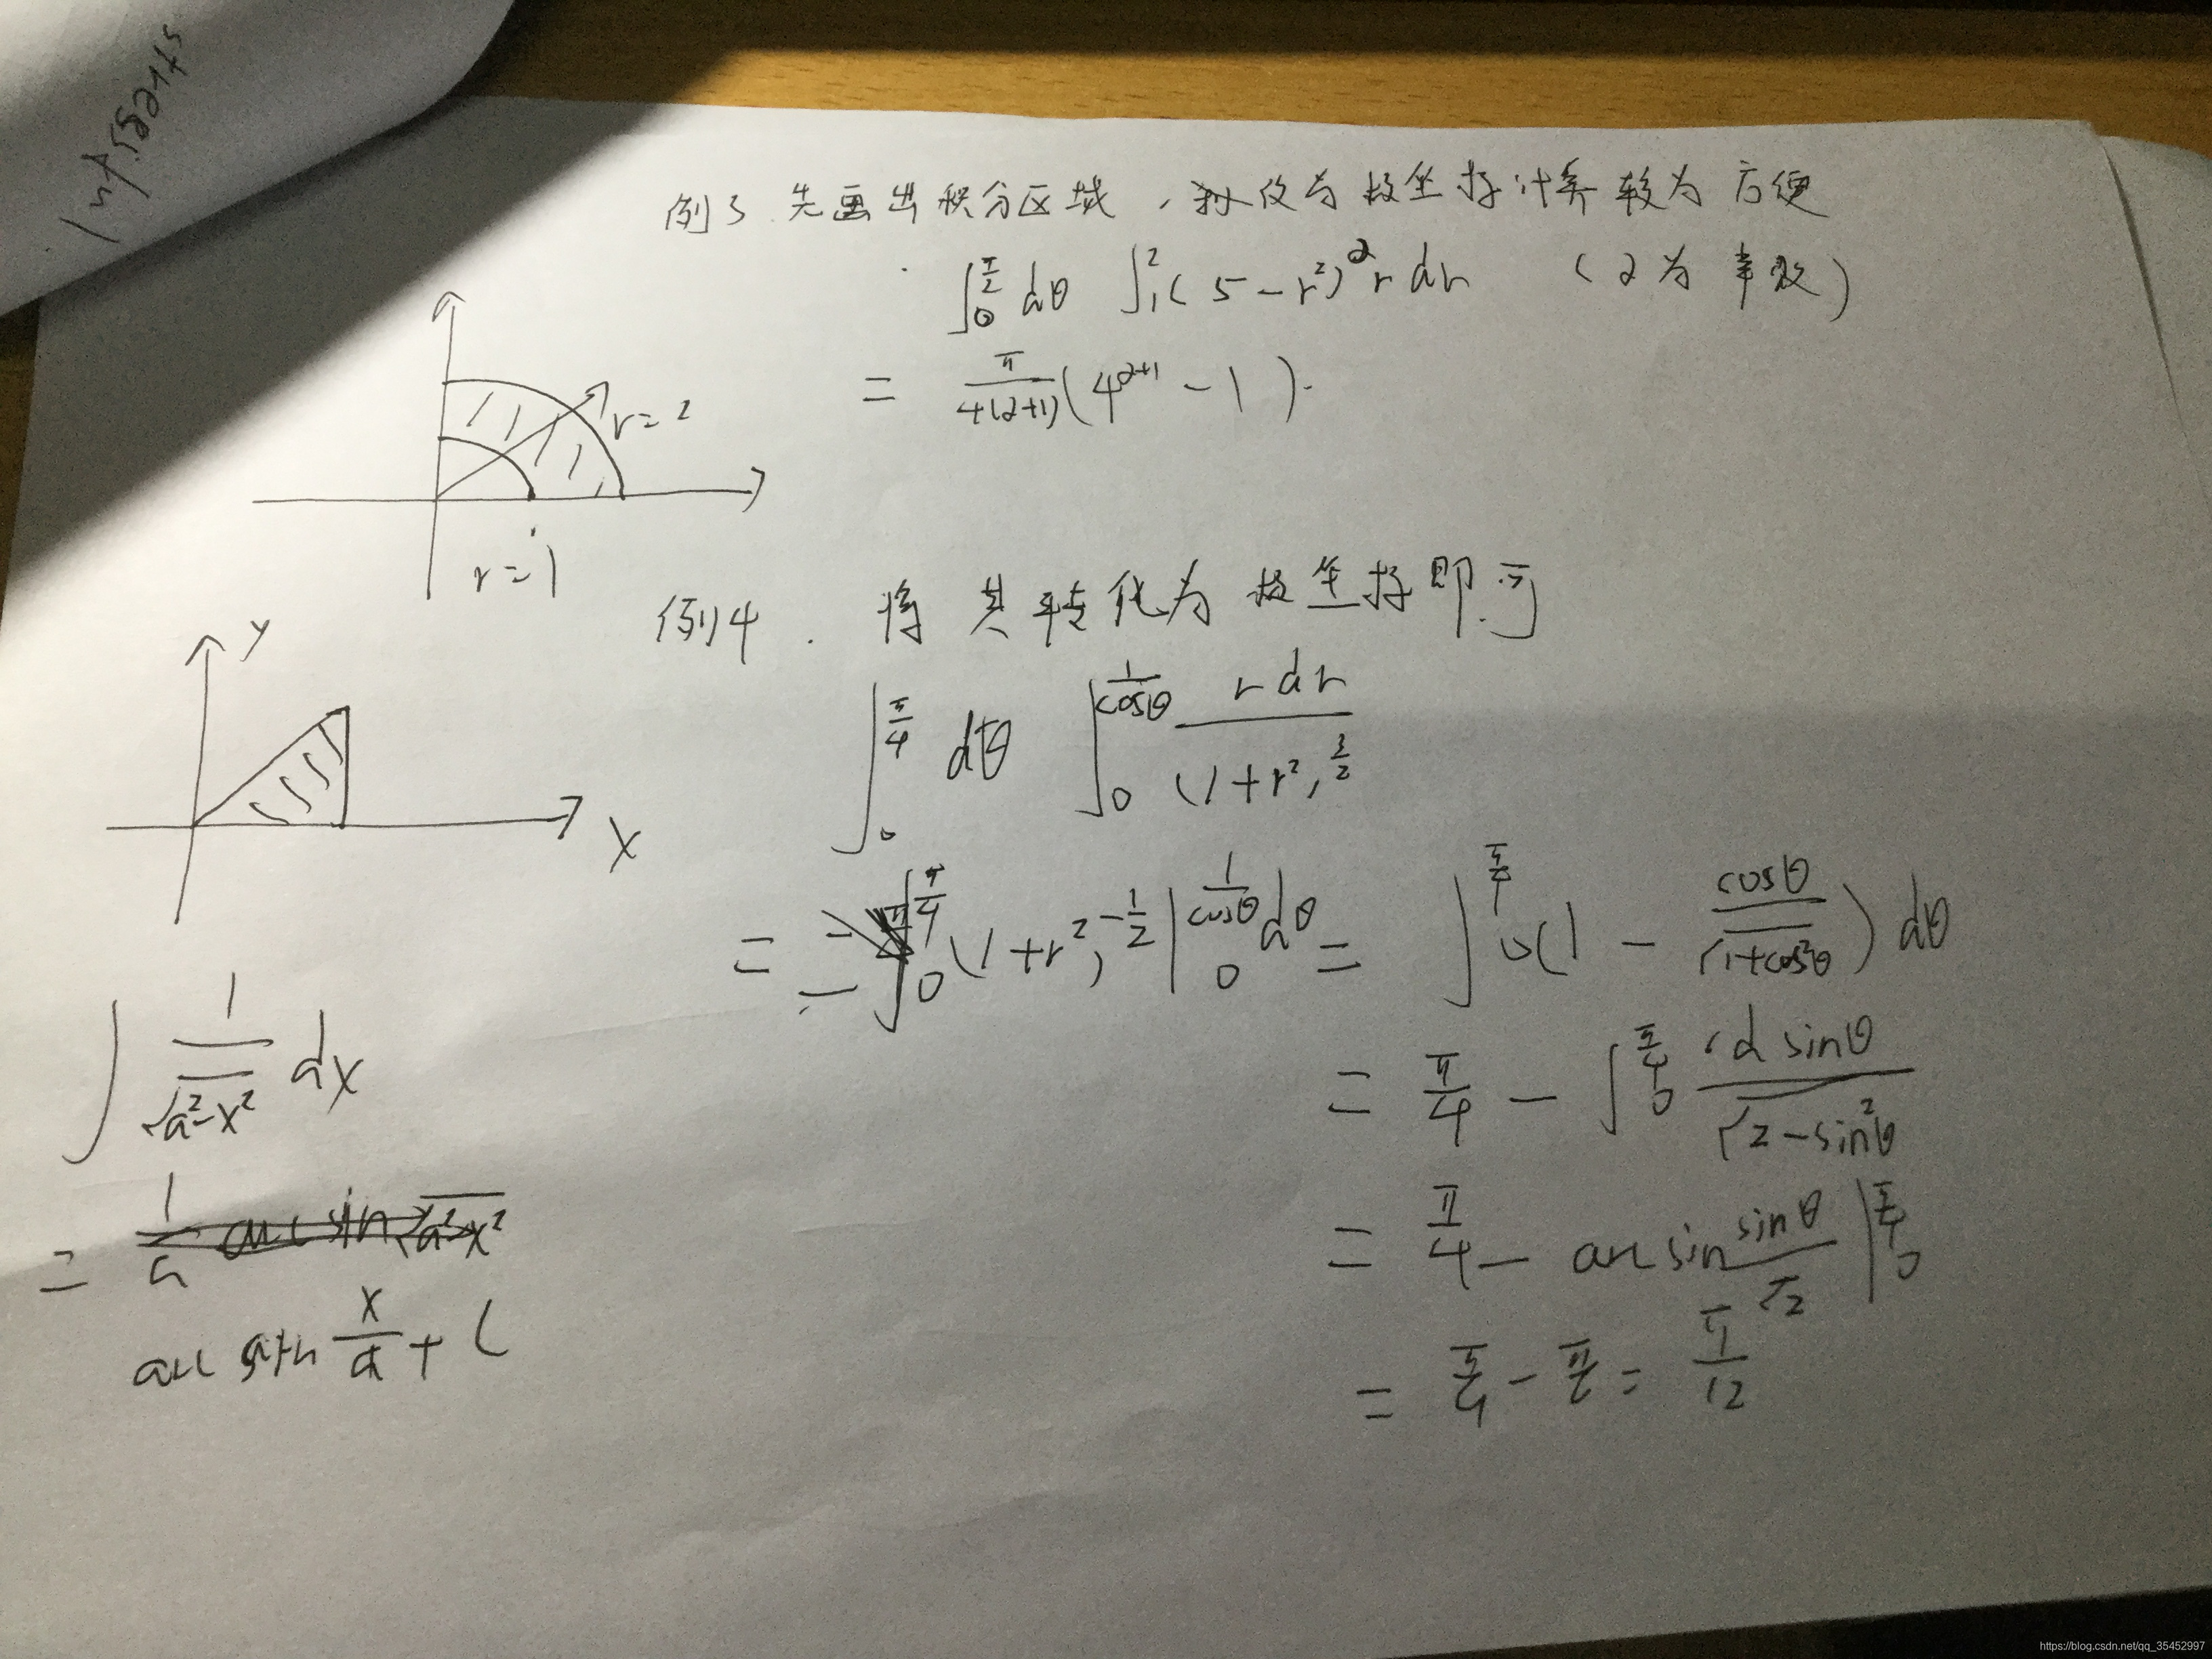 例3 先画出积分区域,化为极坐标计算较为方便
∫_0^{π/2} dθ ∫_1^2 (5-r²)^α r dr (α为常数)
= π/(4(α+1)) (4^{α+1} - 1).
r=2
r=1
例4. 将其转化为极坐标即可
y
x
∫_0^{π/4} dθ ∫_0^{1/cosθ} r dr/(1+r²)^{3/2}
= -∫_0^{π/4} (1+r²)^{-1/2} |_0^{1/cosθ} dθ = ∫_0^{π/4} (1 - cosθ/√(1+cos²θ)) dθ
= π/4 - ∫_0^{π/4} d sinθ/√(2-sin²θ)
= π/4 - arcsin sinθ/√2 |_0^{π/4}
= π/4 - π/6 = π/12
∫ 1/√(a²-x²) dx
= 1/a arcsin √(a²-x²)
arcsin x/a + C
https://blog.csdn.net/qq_35452997